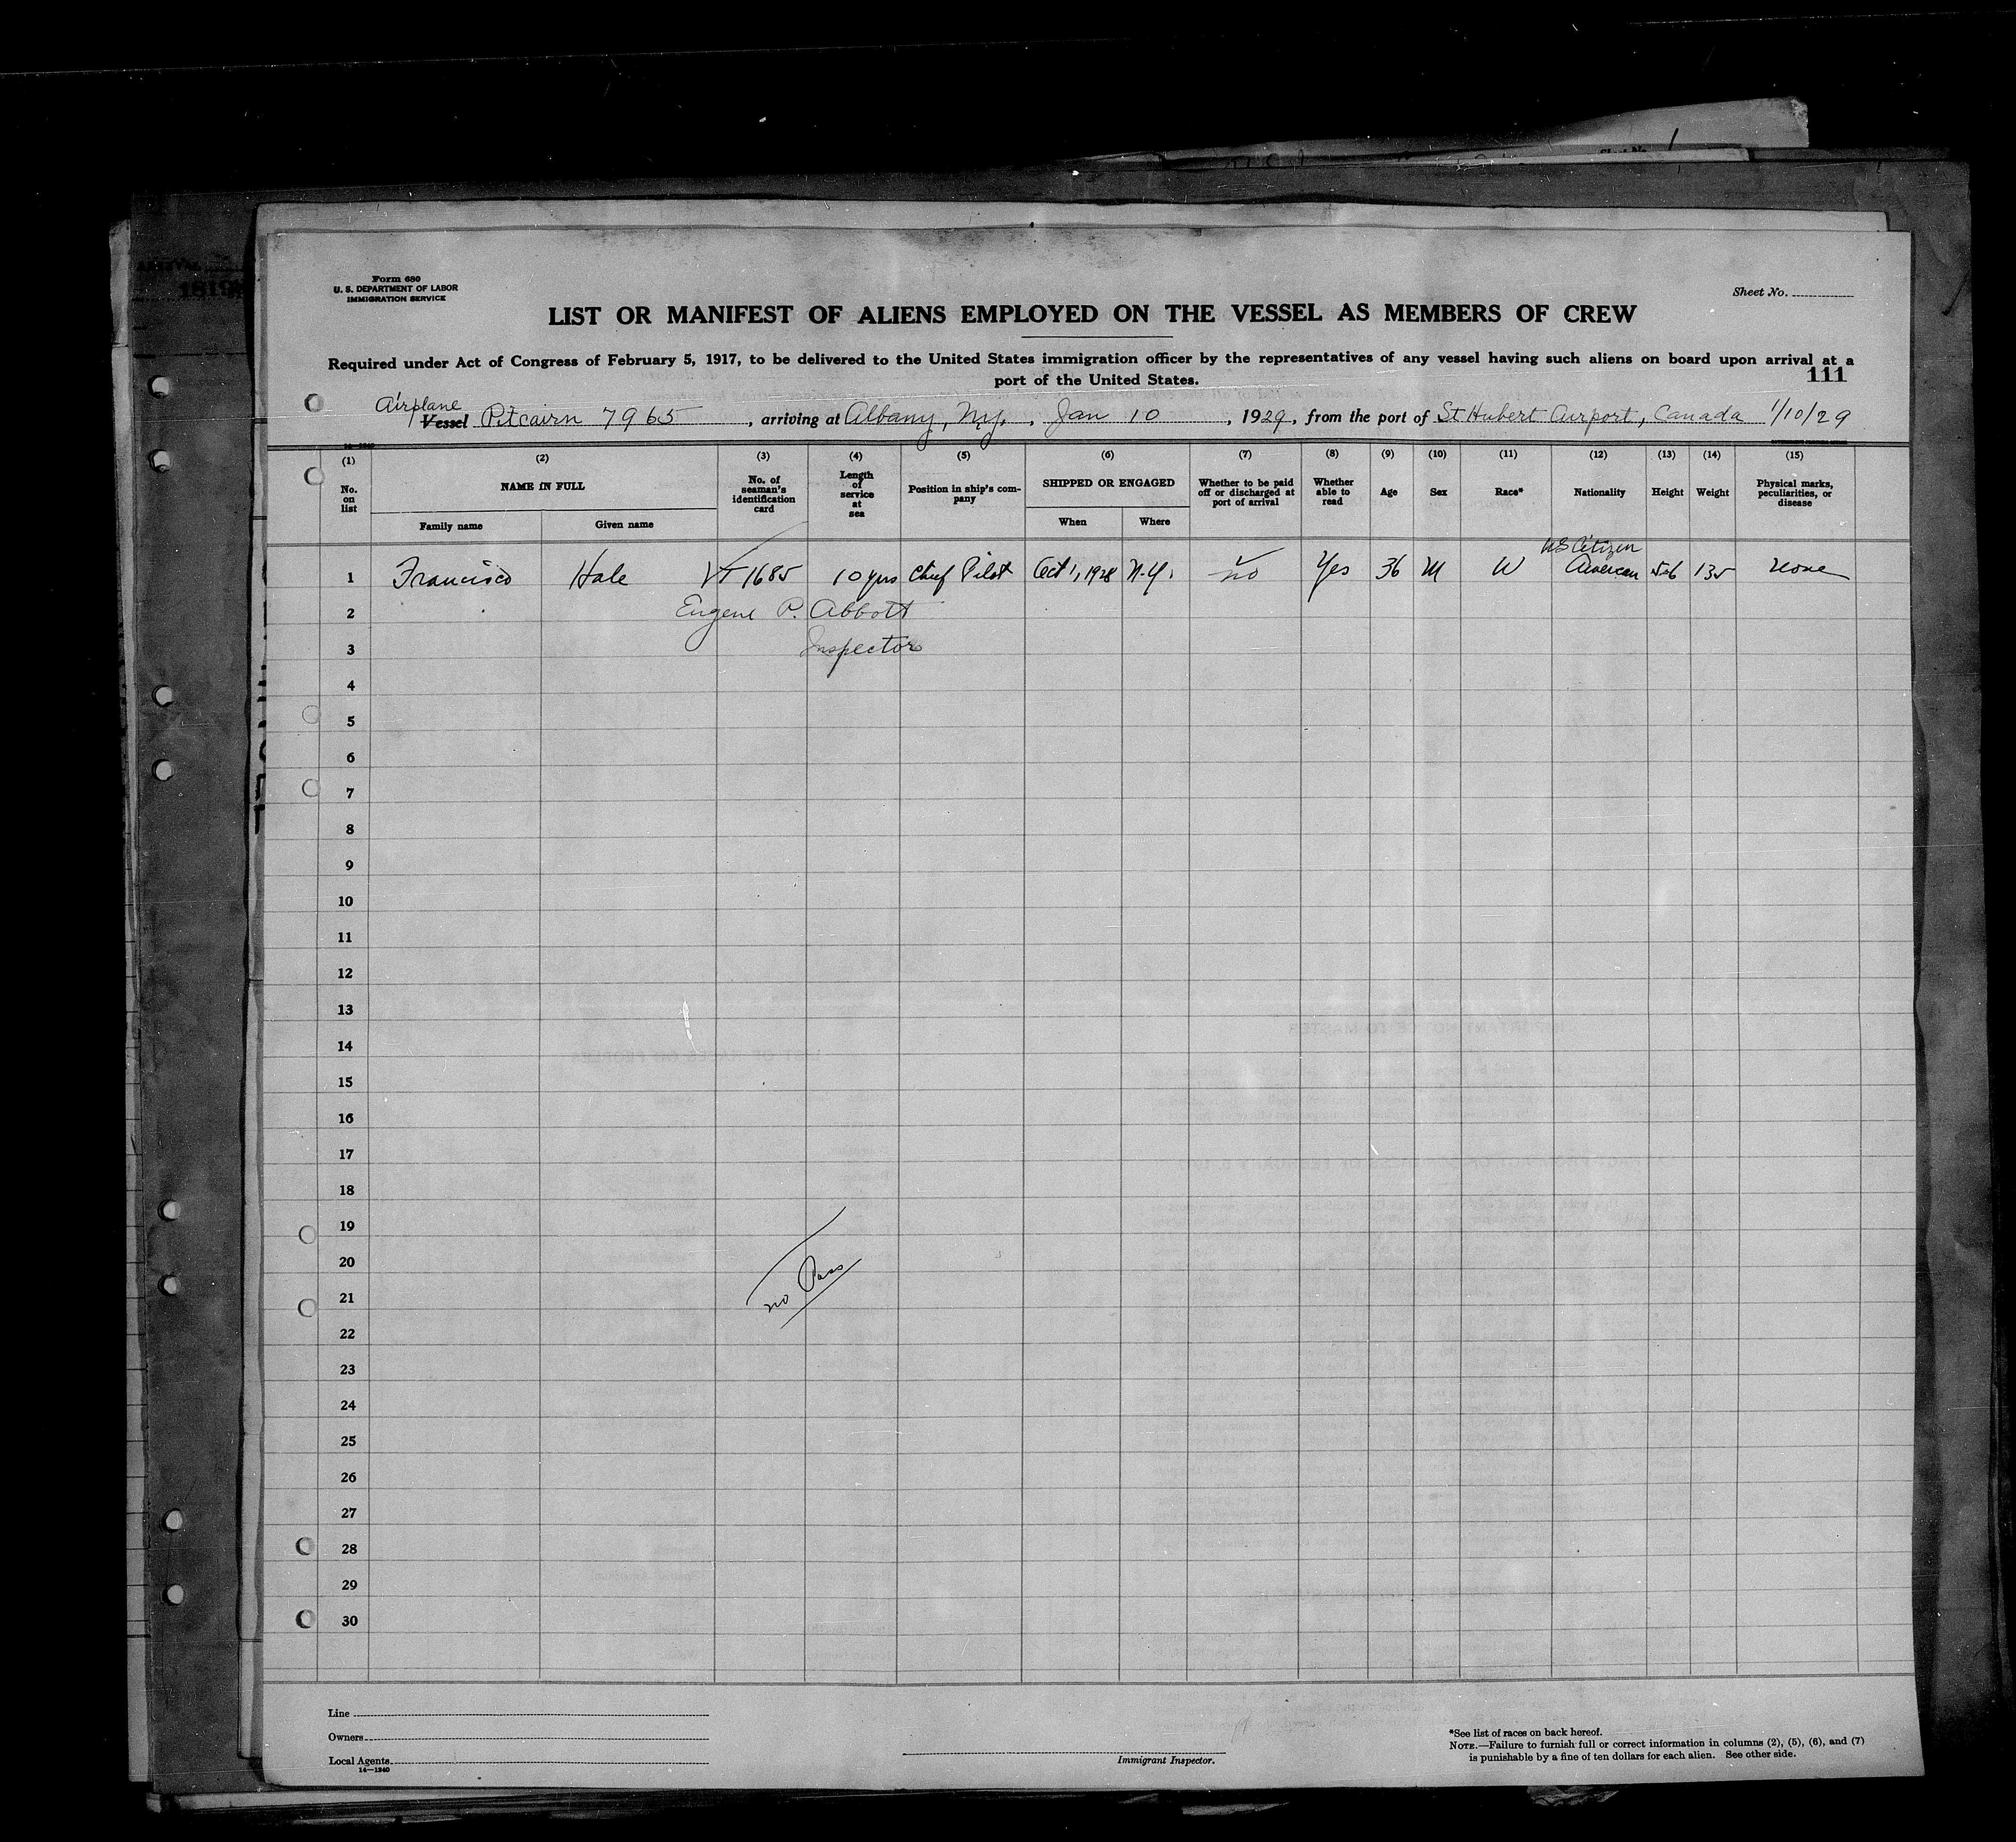 Form 680
U. S. DEPARTMENT OF LABOR
IMMIGRATION SERVICE
Sheet No.
LIST OR MANIFEST OF ALIENS EMPLOYED ON THE VESSEL AS MEMBERS OF CREW
Required under Act of Congress of February 5, 1917, to be delivered to the United States immigration officer by the representatives of any vessel having such aliens on board upon arrival at a
port of the United States.
111
Airplane
Vessel Pitcairn 7965, arriving at Albany, N.Y., Jan 10, 1929, from the port of St Hubert Airport, Canada 1/10/29
14—1240
(1) (2) (3) (4) (5) (6) (7) (8) (9) (10) (11) (12) (13) (14) (15)
No. on list
NAME IN FULL
Family name
Given name
No. of seaman's identification card
Length of service at sea
Position in ship's company
SHIPPED OR ENGAGED
When
Where
Whether to be paid off or discharged at port of arrival
Whether able to read
Age
Sex
Race*
Nationality
Height
Weight
Physical marks, peculiarities, or disease
US Citizen
1 Francisco Hale VT 1685 10 yrs Chief Pilot Oct 1, 1928 N.Y. no Yes 36 M W American 5-6 135 none
2 Eugene P. Abbott
3 Inspector
4
5
6
7
8
9
10
11
12
13
14
15
16
17
18
19
20
21
no Pass
22
23
24
25
26
27
28
29
30
Line
Owners
Local Agents
14—1240
Immigrant Inspector.
*See list of races on back hereof.
NOTE.—Failure to furnish full or correct information in columns (2), (5), (6), and (7)
is punishable by a fine of ten dollars for each alien. See other side.